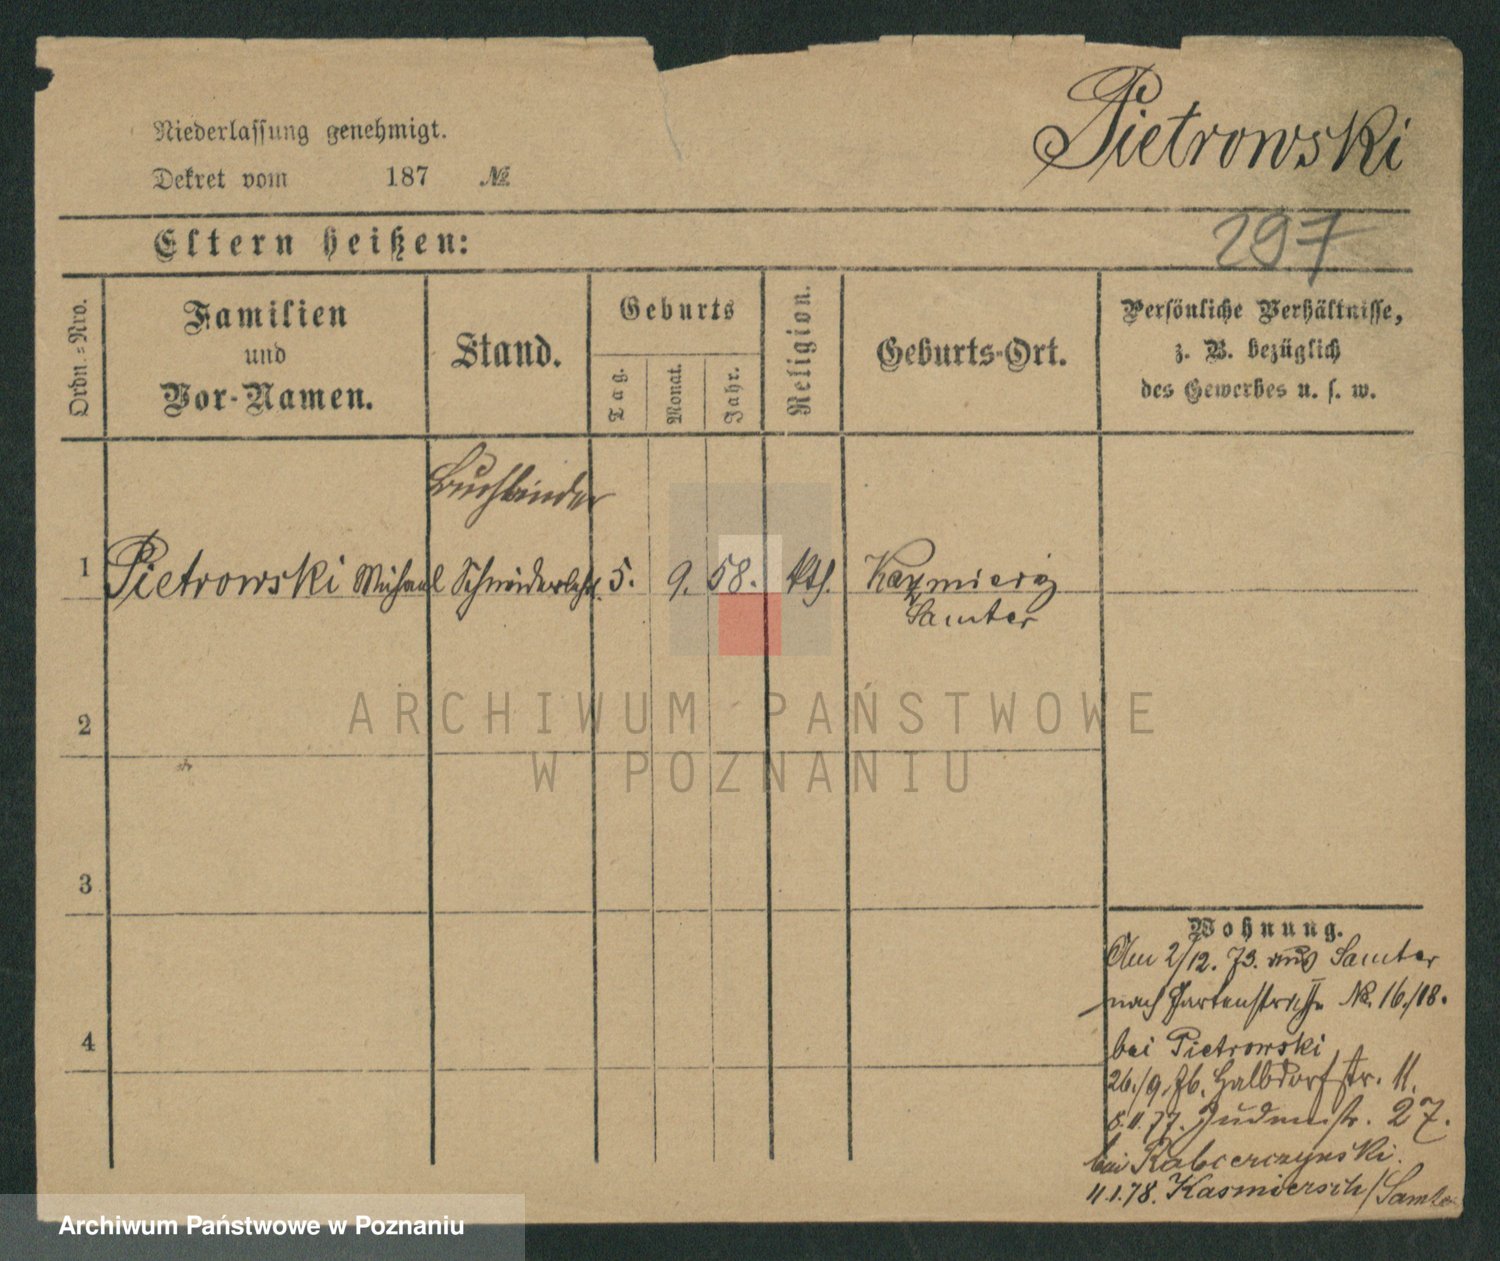 Niederlassung genehmigt.
Dekret vom 187 №
Pietrowski
297
Eltern heißen:
Ordn.-Nro.
Familien
und
Vor-Namen.
Stand.
Geburts
Tag.
Monat.
Jahr.
Religion.
Geburts-Ort.
Persönliche Verhältnisse,
z. B. bezüglich
des Gewerbes u. s. w.
Buchbinder
1 Pietrowski Michael Schneiderlehrl. 5. 9. 58. kth. Kazmierz
Samter
2
3
4
Wohnung.
Am 2/12. 73. aus Samter
nach Gartenstraße Nr. 16/18.
bei Pietrowski
26./9. 76. Halbdorfstr. 11.
8.11.77. Judenstr. 27.
bei
11.1.78. Kasmiersch/Samter
ARCHIWUM PAŃSTWOWE
W POZNANIU
Archiwum Państwowe w Poznaniu